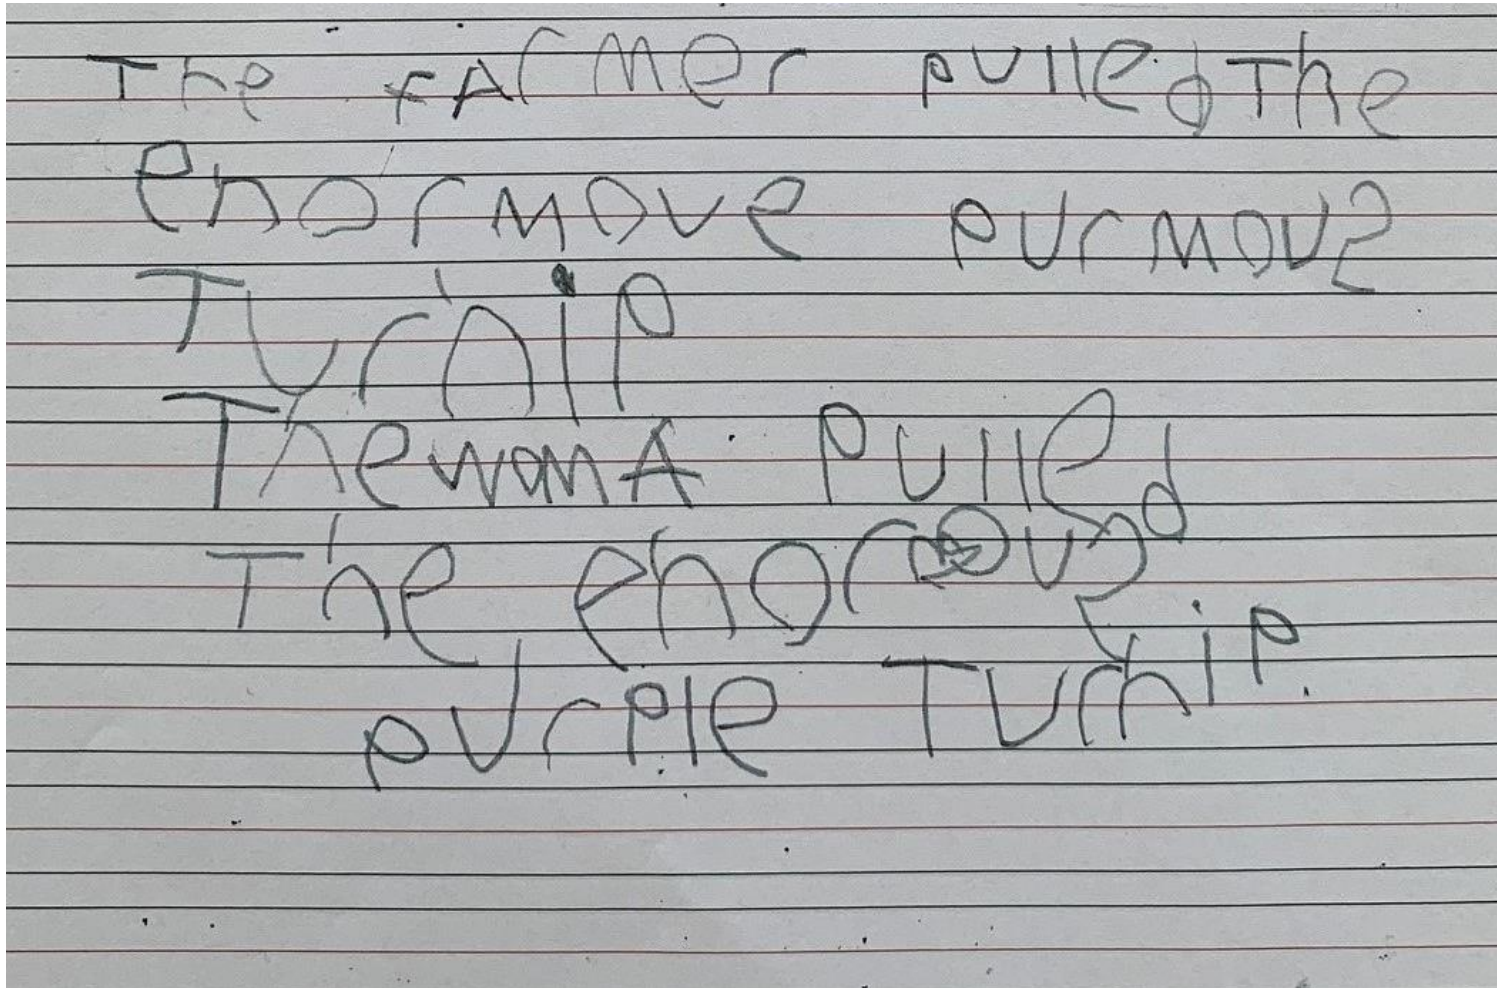 The fArmer pulled The
enormove purmous
Turnip
The womA pulled
The enormous
purple Turnip.